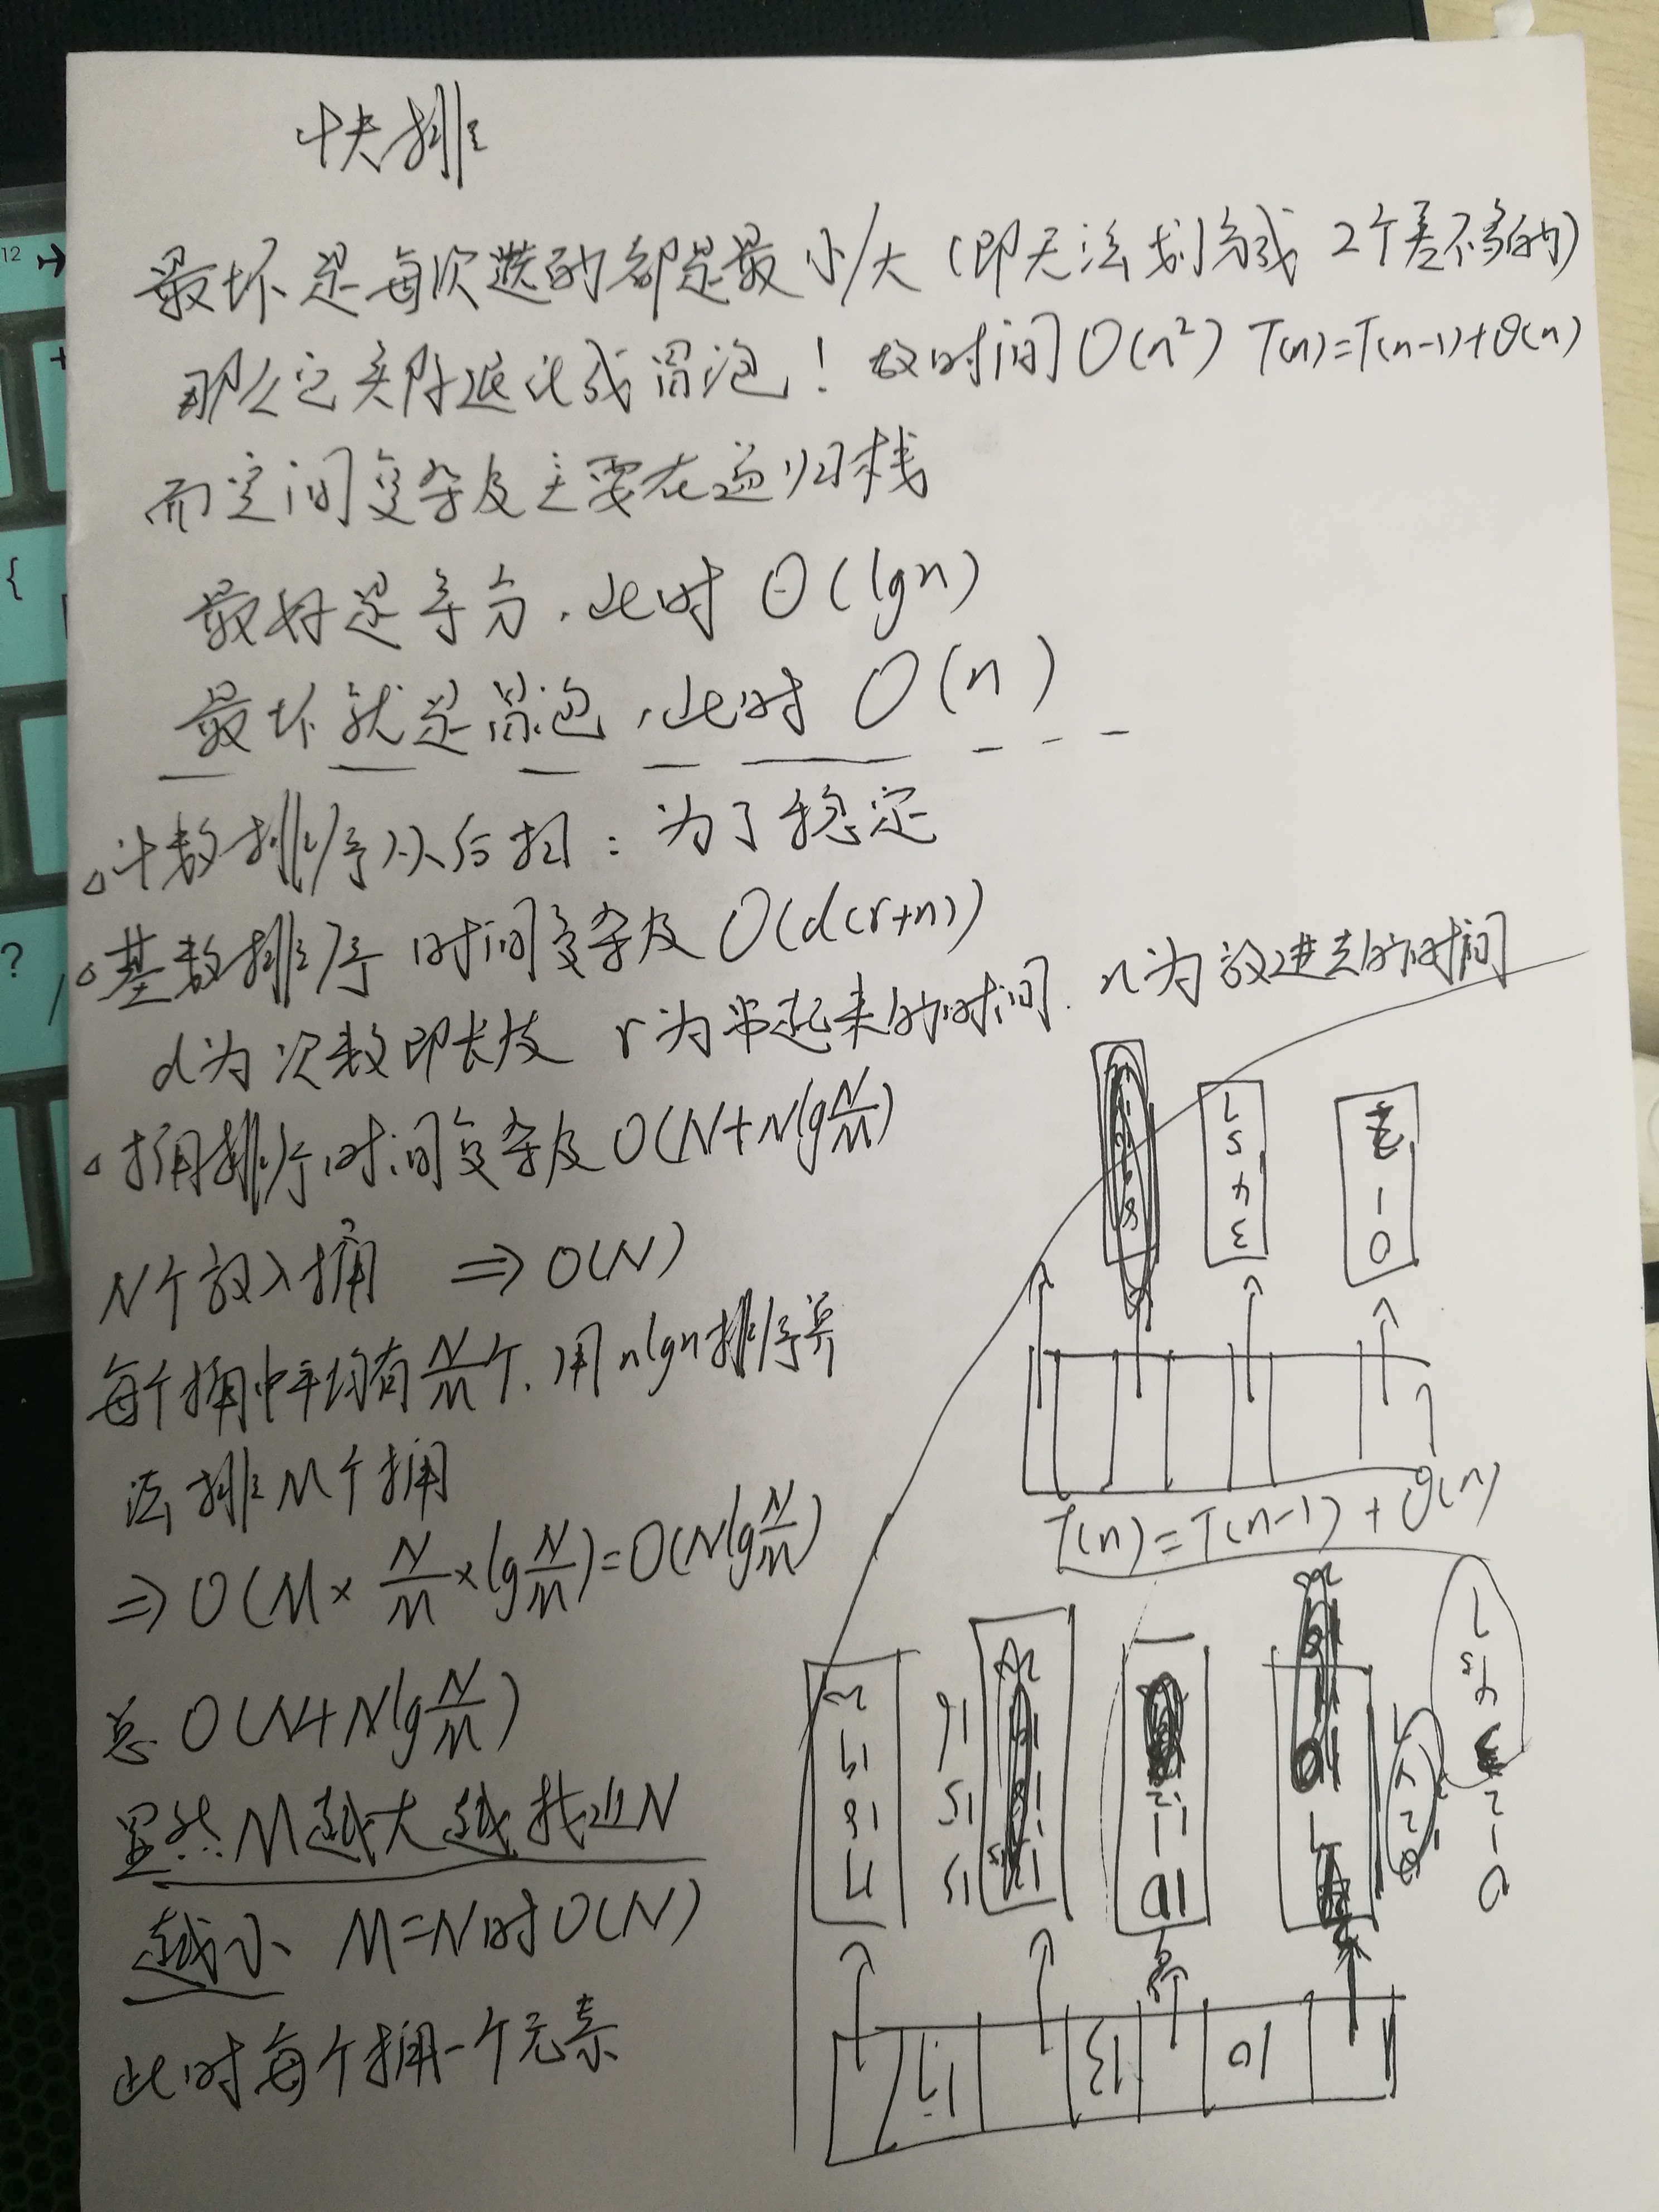 快排
最坏是每次选的都是最小/大（即无法划分成 2个差不多的）
那么它实际退化成冒泡！ 故时间O(n²) T(n)=T(n-1)+O(n)
而空间复杂度主要在递归栈
最好是等分，此时 O(lgn)
最坏就是冒泡，此时 O(n)
计数排序从后扫：为了稳定
基数排序 时间复杂度 O(d(r+n))
d为次数即长度 r为串起来的时间. n为放进去的时间
桶排序时间复杂度 O(N+Nlg N/M)
N个放入桶 ⇒ O(N)
每个桶中平均有 N/M 个，用nlgn排序算
法排M个桶
⇒ O(M × N/M × lg N/M)=O(Nlg N/M)
总 O(N+Nlg N/M)
显然M越大越接近N
越小 M=N时O(N)
此时每个桶一个元素
T(n)=T(n-1)+O(n)